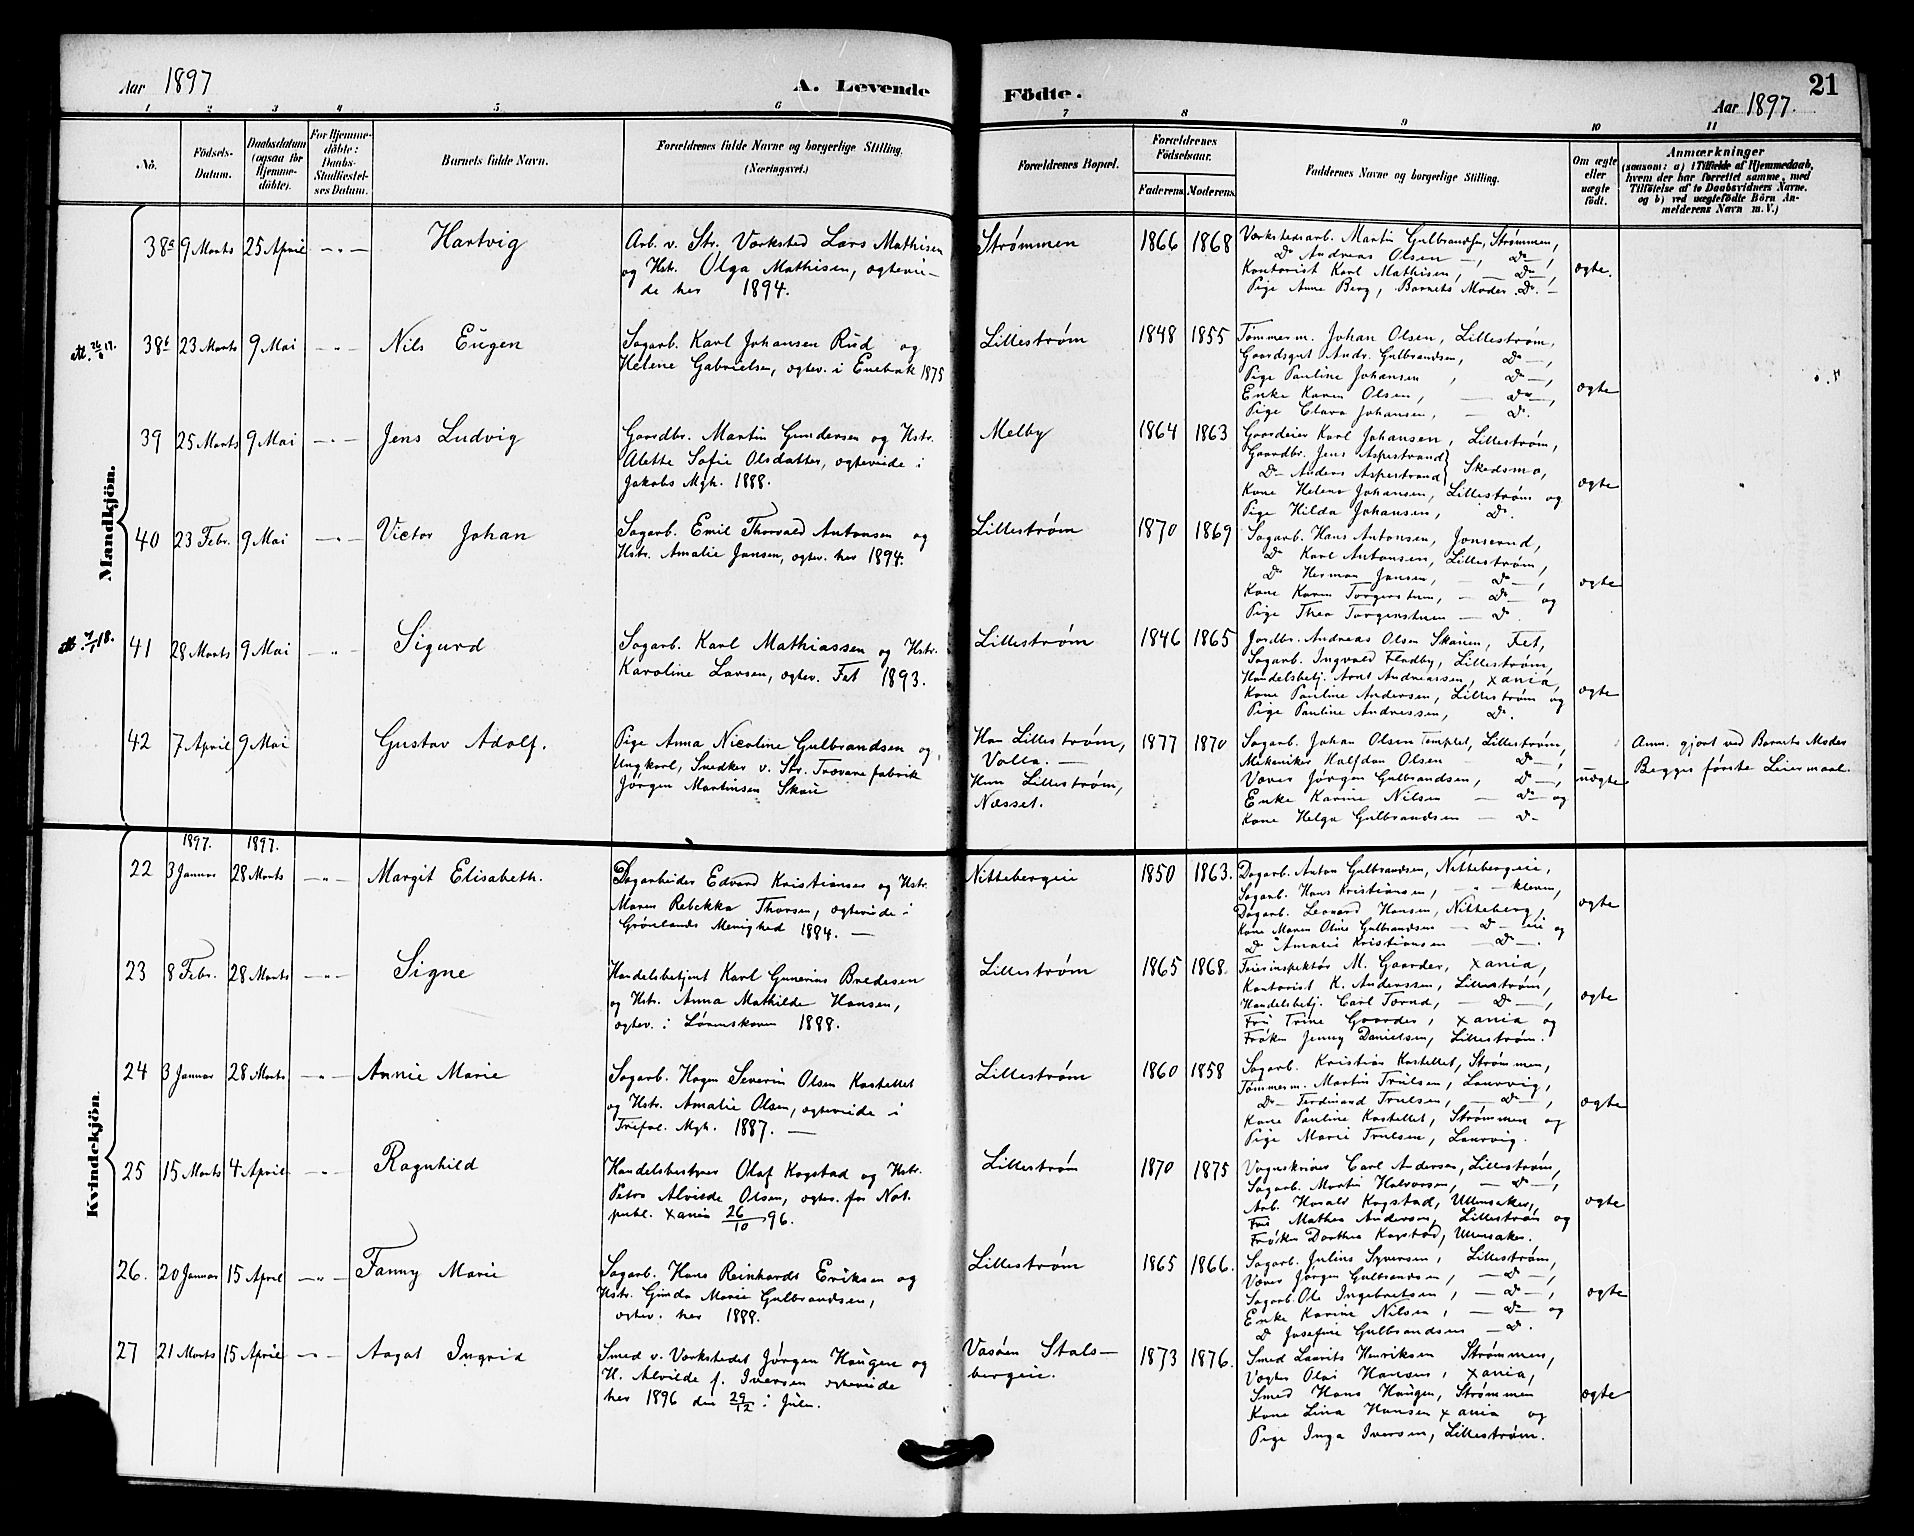 Aar 1897
A. Levende Födte.
21
Aar 1897.
1 2 3 4 5 6 7 8 9 10 11
No.
Födsels-
Datum.
Daabsdatum
(ogsaa for
Hjemme-
döbte).
For Hjemme-
döbte:
Daabs-
Stadfæstel-
ses Datum.
Barnets fulde Navn.
Forældrenes fulde Navne og borgerlige Stilling.
(Næringsvei.)
Forældrenes Bopæl.
Forældrenes
Födselsaar.
Faderens. Moderens.
Faddernes Navne og borgerlige Stilling.
Om ægte
eller
uægte
født.
Anmærkninger
(saasom: a) i Tilfælde af Hjemmedaab,
hvem der har forrettet samme, med
Tilföielse af to Daabsvidners Navne.
og b) ved uægtefödte Börn An-
melderens Navn m. V.)
Mandkjön.
38a 9 Marts 25 April — " — Hartvig
Arb. v. Str. Værksted Lars Mathisen
og Hstr. Olga Mathisen, ægtevi-
de her 1894.
Strømmen 1866 1868
Værkstedsarb. Martin Gulbrandsen, Strømmen,
Do Andreas Olsen —, Do —,
Kontorist Karl Mathisen, — Do —,
Pige Anne Berg, Barnets Moder Do. —
ægte.
38b 23 Marts 9 Mai — " — Nils Eugen
Sagarb. Karl Johansen Rud og
Helene Gabrielsen, ægtev. i Enebak 1875
Lillestrøm 1848 1855
Tømmerm. Johan Olsen, Lillestrøm,
Gaardsgut Andr. Gulbrandsen, Do —,
Pige Pauline Johansen, Do —,
Enke Karen Olsen, — Do —,
Pige Clara Johansen, — Do.
ægte
39 25 Marts 9 Mai — " — Jens Ludvig
Gaardbr. Martin Gundersen og Hstr.
Alette Sofie Olsdatter, ægteviede i
Jakobs Mgh. 1888.
Melby 1864 1863
Gaardeier Karl Johansen, Lillestrøm,
Gaardbr. Jens Asperstrand
Do — Anders Asperstrand } Skedsmo,
Kone Helene Johansen, Lillestrøm og
Pige Hilda Johansen, Do.
ægte
40 23 Febr. 9 Mai — " — Victor Johan
Sagarb. Emil Thorvald Antonsen og
Hstr. Amalie Jansen, ægtev. her 1894.
Lillestrøm 1870 1869
Sagarb. Hans Antonsen, Jonsrud,
Do Karl Antonsen, Lillestrøm,
Do Herman Jansen, — Do —,
Kone Karen Torgerstuen, — Do — og
Pige Thea Torgerstuen — Do
ægte
41 28 Marts 9 Mai — " — Sigurd
Sagarb. Karl Mathiassen og Hstr.
Karoline Larsen, ægtev. Fet 1893.
Lillestrøm 1846 1865
Jordbr. Andreas Olsen Skauen, Fet,
Sagarb. Ingvald Fladby, Lillestrøm,
Handelsbetj. Arnt Andreassen, Xania,
Kone Pauline Andersen, Lillestrøm og
Pige Pauline Andressen, Do.
ægte
42 7 April 9 Mai Gustav Adolf.
Pige Anna Nicoline Gulbrandsen og,
Ungkarl, Snedker v. Str. Trævarefabrik
Jørgen Martinsen Skau
Han Lillestrøm,
Volla. —
Hun Lillestrøm,
Næsset.
1877 1870
Sagarb. Johan Olsen Templet, Lillestrøm,
Mekaniker Halfdan Olsen — Do —,
Væver Jørgen Gulbrandsen, Do —,
Enke Karine Nilsen — Do — og
Kone Helga Gulbrandsen — Do —
uægte
Anm. gjort ved Barnets Moder
Begges første Leiermaal.
Kvindekjön.
1897. 1897.
22 3 Januar 28 Marts — " — Margit Elisabeth.
Dagarbeider Edvard Kristiansen og Hstr.
Maren Rebekka Thorsen, ægteviede i
Grønlands Menighed 1884. —
Nittebergeie 1850 1863.
Dagarb. Anton Gulbrandsen, Nittebergeie,
Sagarb. Hans Kristiansen, — " —
Dagarb. Leonard Hansen, Nitteberg,
Kone Maren Oline Gulbrandsen — Do — eie og
Do Amalie Kristiansen — Do —.
ægte
23 8 Febr. 28 Marts — " — Signe
Handelsbetjent Karl Gunerius Bredesen
og Hstr. Anna Mathilde Hansen,
ægtev. i Lørenskoven 1888.
Lillestrøm 1865 1868.
Feierinspektør M. Gaarder, Xania,
Kontorist K. Anderssen, Lillestrøm,
Handelsbetj. Carl Tornd, — Do —,
Fru Trine Gaarder, Xania og
Frøken Jenny Danielsen, Lillestrøm.
ægte
24 3 Januar 28 Marts — " — Annie Marie
Sagarb. Hagen Severin Olsen Kastellet
og Hstr. Amalie Olsen, ægteviede i
Trefol. Mgh. 1887. —
Lillestrøm 1860 1858
Sagarb. Kristian Kastellet, Strømmen,
Tømmerm. Martin Trulsen, Laurvig,
Do — Ferdinand Trulsen, — Do —,
Kone Pauline Kastellet, Strømmen og
Pige Marie Trulsen, Laurvig.
ægte
25 15 Marts 4 April — " — Ragnhild
Handelsbestyrer Olaf Kogstad og Hstr.
Petra Alvilde Olsen, ægtev. for Not.
publ. Xania 26/10 96.
Lillestrøm 1870 1875
Vognskriver Carl Andersen, Lillestrøm,
Sagarb. Martin Halvorsen, — Do —,
Arb. Harald Kogstad, Ullensaker,
Fru Mathea Andersen, Lillestrøm og
Frøken Dorthea Kogstad, Ullensaker.
ægte
26. 20 Januar 15 April — " — Fanny Marie
Sagarb. Hans Reinhardt Eriksen og
Hstr. Ginda Marie Gulbrandsen,
ægtev. her 1888.
Lillestrøm 1865 1866.
Sagarb. Julius Syversen, Lillestrøm,
Væver Jørgen Gulbrandsen, — Do —,
Sagarb. Ole Ingebretsen, — Do —,
Enke Karine Nilsen, — Do — og
Do Josefine Gulbrandsen — Do.
ægte
27 21 Marts 15 April — " — Aagot Ingrid
Smed v. Værkstedet Jørgen Haugen og
H. Alvilde f. Iversen ægteviede
her 1896 den 29/12 i Julen.
Vasøen Stals-
bergeie.
1873 1876.
Smed Laurits Henriksen Strømmen,
Vogter Olai Hansen, Xania,
Smed Hans Haugen, Strømmen
Kone Lina Hansen Xania og
Pige Inga Iversen, Lillestrøm.
ægte